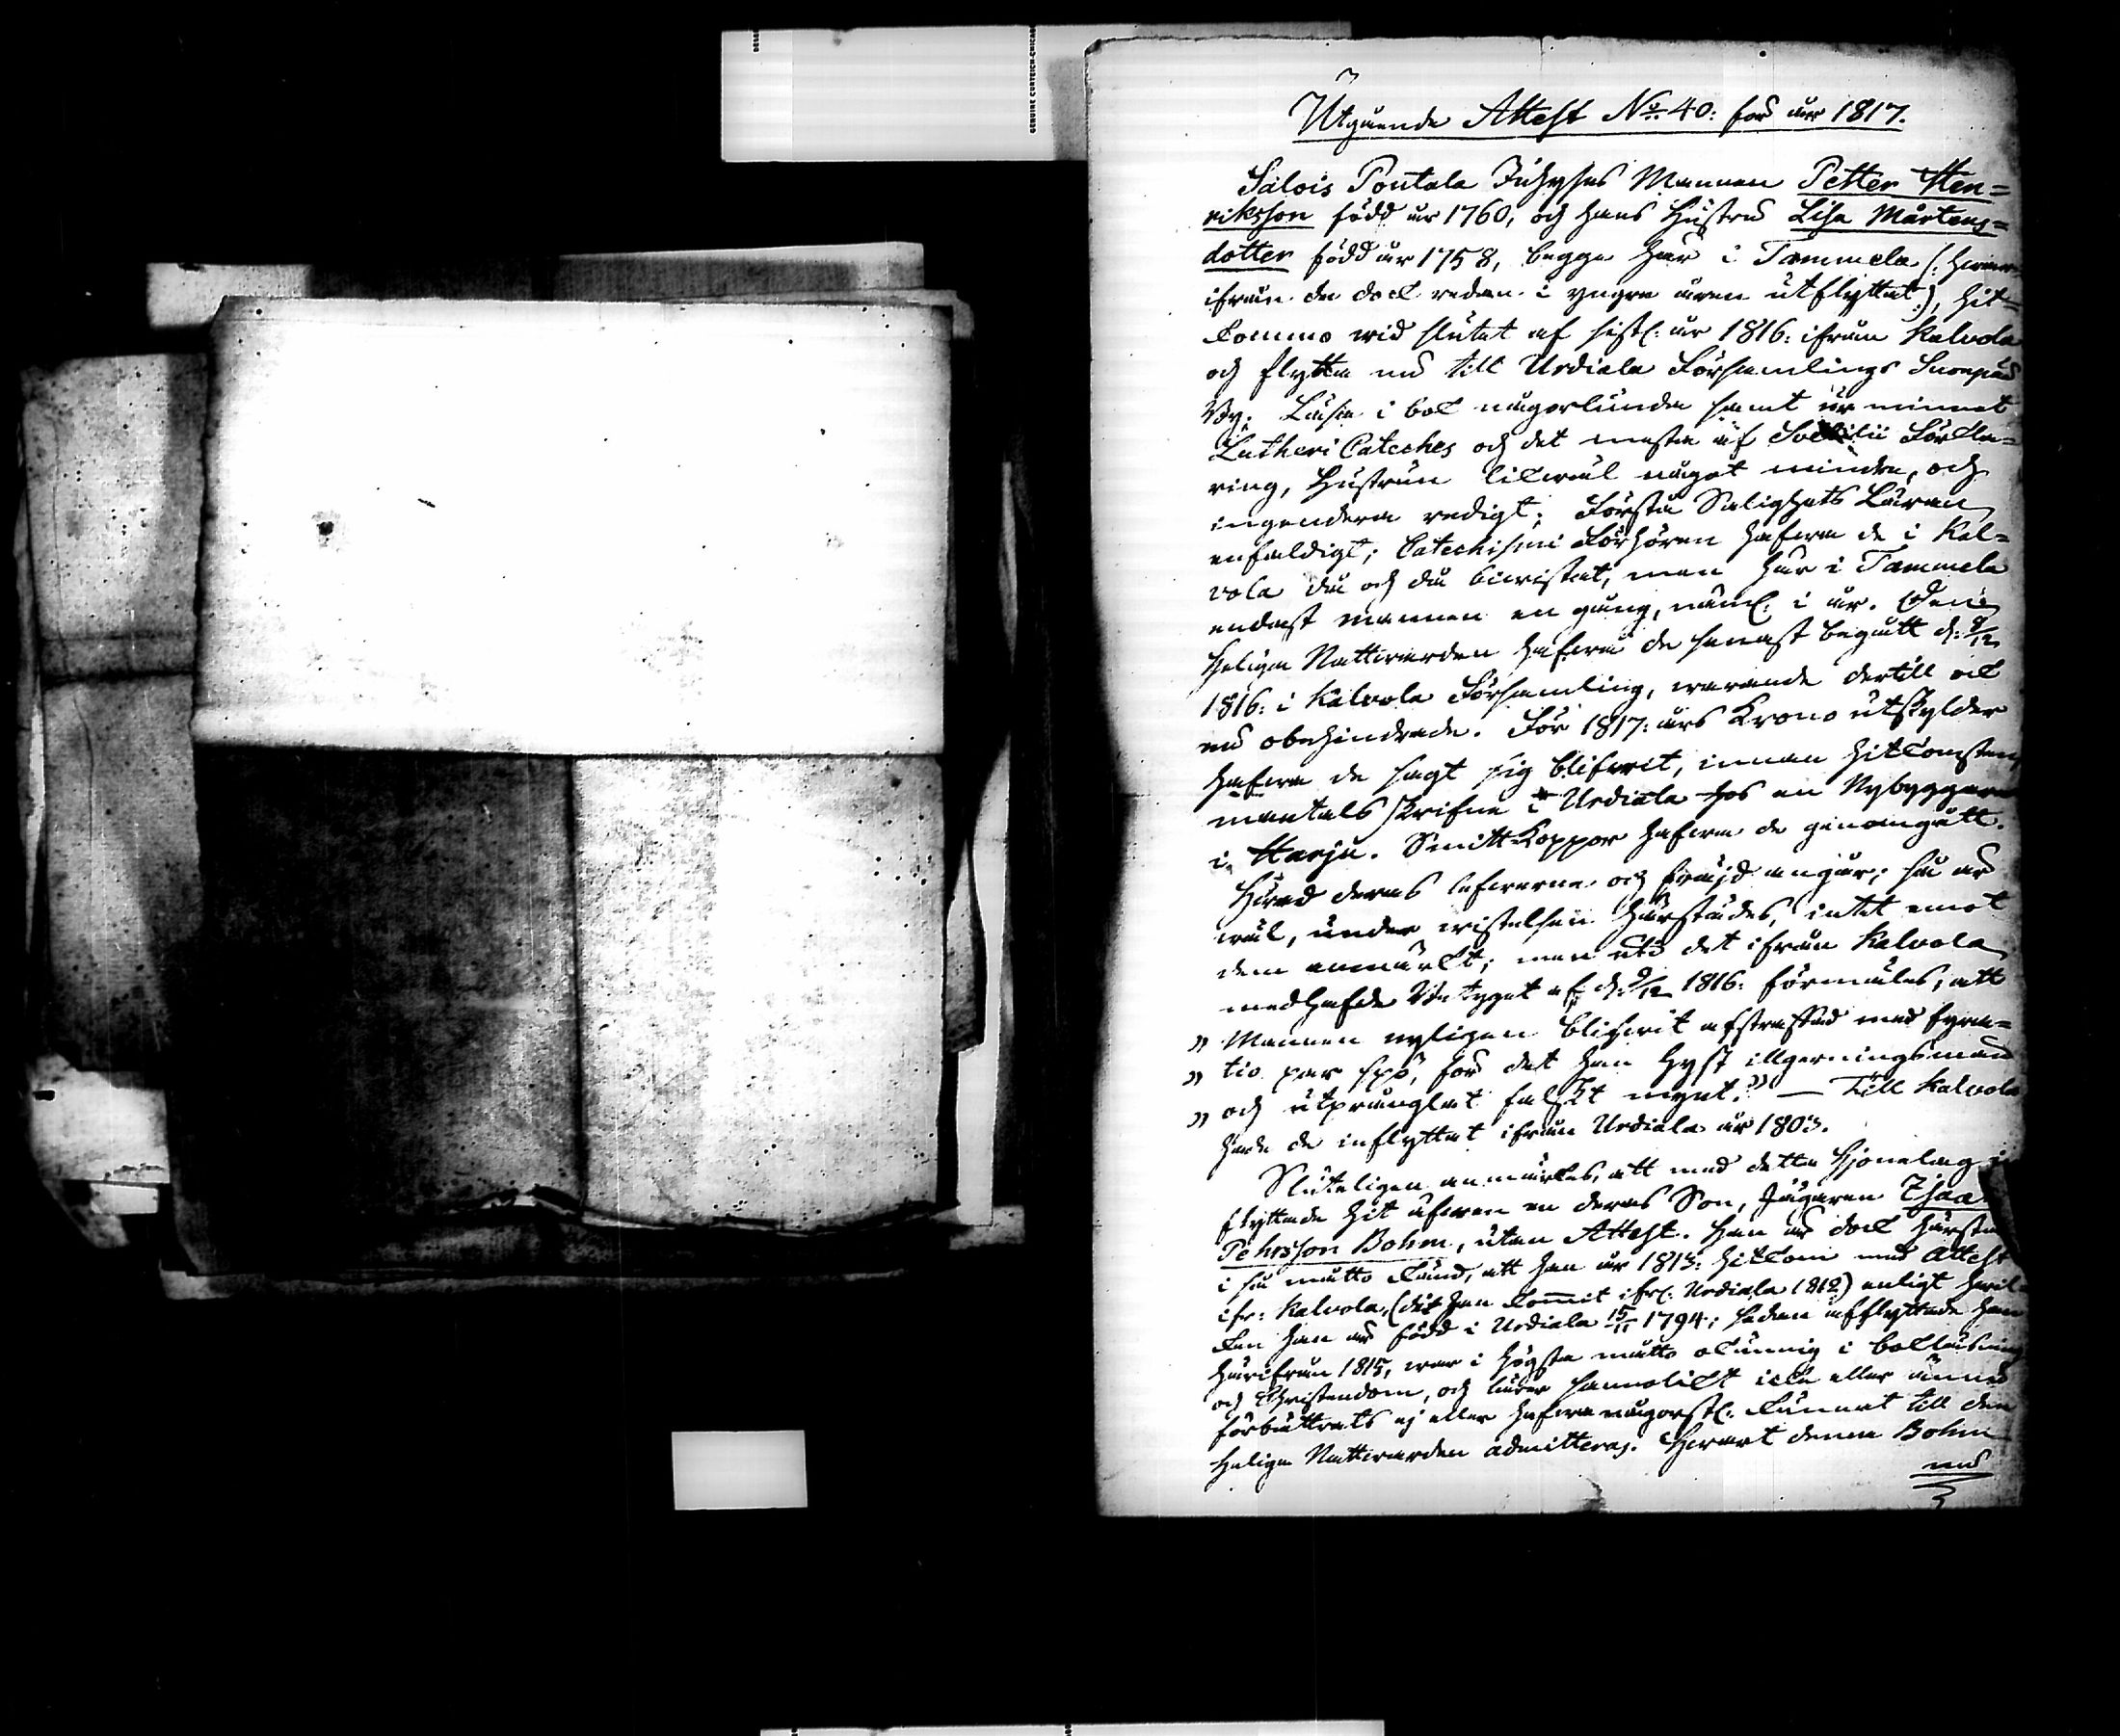 Utgående Attest No. 40: för år 1817.
Salois Pontala Inhyses Mannen Petter Hen=
riksson född år 1760, och hans Hustru Lisa Mårtens=
dotter född år 1758, begge här i Tammela (: hwar
ifrån de dock redan i yngre åren utflyttat:), hit=
kommo wid slutet af sistl: år 1816: ifrån Kalvola
och flytta nu till Urdiala Församlings
By; Läsa i bok någorlunda samt ur minnet
Lutheri Cateches och det mesta af Svebilii Förkla=
ring, Hustrun likwäl något mindre, och
ingendera redigt; Förstå Salighets Läran
enfaldigt; Catechismi Förhören hafwa de i Kal=
vola då och då biwistat, men här i Tammela
endast mannen en gång, näml: i år. Den
Heliga Nattwarden hafwa de senast begått d:
1816: i Kalvola Församling, warande dertill ock
nu obehindrade. För 1817: års Krono utskylder
hafwa de sagt sig blifwit, innan hitkomsten,
mantals skrifne i Urdiala hos en Nybyggare
i Harju. Smitt-Koppor hafwa de genomgått.
Hwad deras lefwerne och fräjd angår; så är
wäl, under wistelsen härstädes, intet emot
dem anmärkt; men uti det ifrån Kalvola
medhafde Betyget af d: 9/12 1816: förmäles, att
" Mannen nyligen blifwit afstraffad med fyra=
" tio par spö, för det han hyst illgerningsmän
" och utprånglat falskt mynt." — Till Kalvola
hade de inflyttat ifrån Urdiala år 1803.
Sluteligen anmärkes, att med detta Hjonelag
flyttade hit äfwen en deras Son, Jägaren Isaac
Pehrsson Bohm, utan Attest. Han är dock härstädes
i så måtto känd, att han år 1813: hitkom med Attest
ifr: Kalvola, (dit han kommit ifr: Urdiala 1812) enligt hwil=
ken han är född i Urdiala 15/11 1794; sedan afflyttade han
härifrån 1815, war i högsta måtto okunnig i bokläsning
och Christendom, och lärer sannolikt icke eller ännu
förbättrats ej eller hafwa någorst: kunnat till den
Heliga Nattwarden admitteras. Hwart denne Bohm
nu